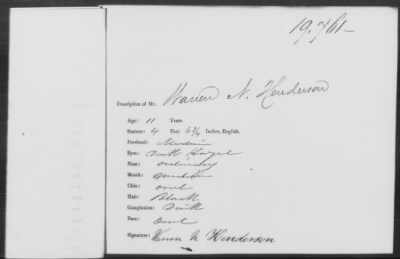 19,761-
Description of Mr. Warren N. Henderson
Age: 11 Years
Stature: 4 Feet 6 3/4 Inches, English.
Forehead: Medium
Eyes: Dark Hazel
Nose: ordinary
Mouth: Medium
Chin: oval
Hair: Black
Complexion: Dark
Face: Oval
Signature: Warren N Henderson